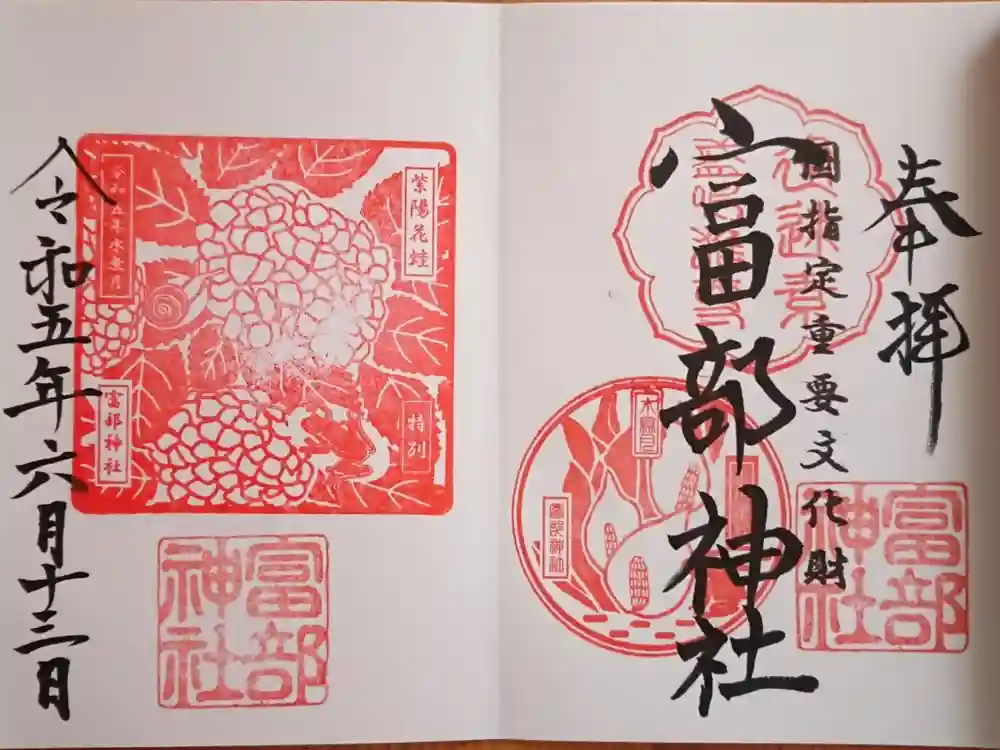 奉拝
国指定重要文化財
富部神社
富部神社
富部神社
紫陽花蛙
特別
令和五年水無月
富部神社
富部神社
令和五年六月十三日